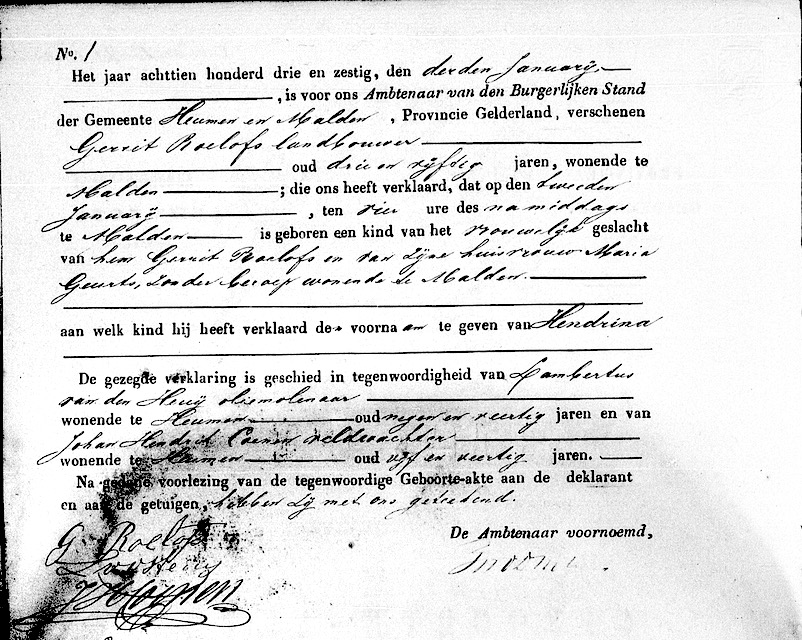 No. 1
Het jaar achttien honderd drie en zestig, den derden Januarij
, is voor ons Ambtenaar van den Burgerlijken Stand
der Gemeente Heumen en Malden , Provincie Gelderland, verschenen
Gerrit Roelofs landbouwer
oud drie en vijftig jaren, wonende te
Malden ; die ons heeft verklaard, dat op den tweeden
Januarij , ten vier ure des namiddags
te Malden is geboren een kind van het vrouwelijk geslacht
van hem Gerrit Roelofs en van zijne huisvrouw Maria
Geurts, zonder beroep wonende te Malden.
aan welk kind hij heeft verklaard de voornaam te geven van Hendrina
De gezegde verklaring is geschied in tegenwoordigheid van Lambertus
van den Heuij oliemolenaar
wonende te Heumen oud negen en veertig jaren en van
Johan Hendrik Coenen veldwachter
wonende te Heumen oud vijf en veertig jaren.
Na gedane voorlezing van de tegenwoordige Geboorte-akte aan de deklarant
en aan de getuigen, hebben zij met ons geteekend.
De Ambtenaar voornoemd,
G Roelofs